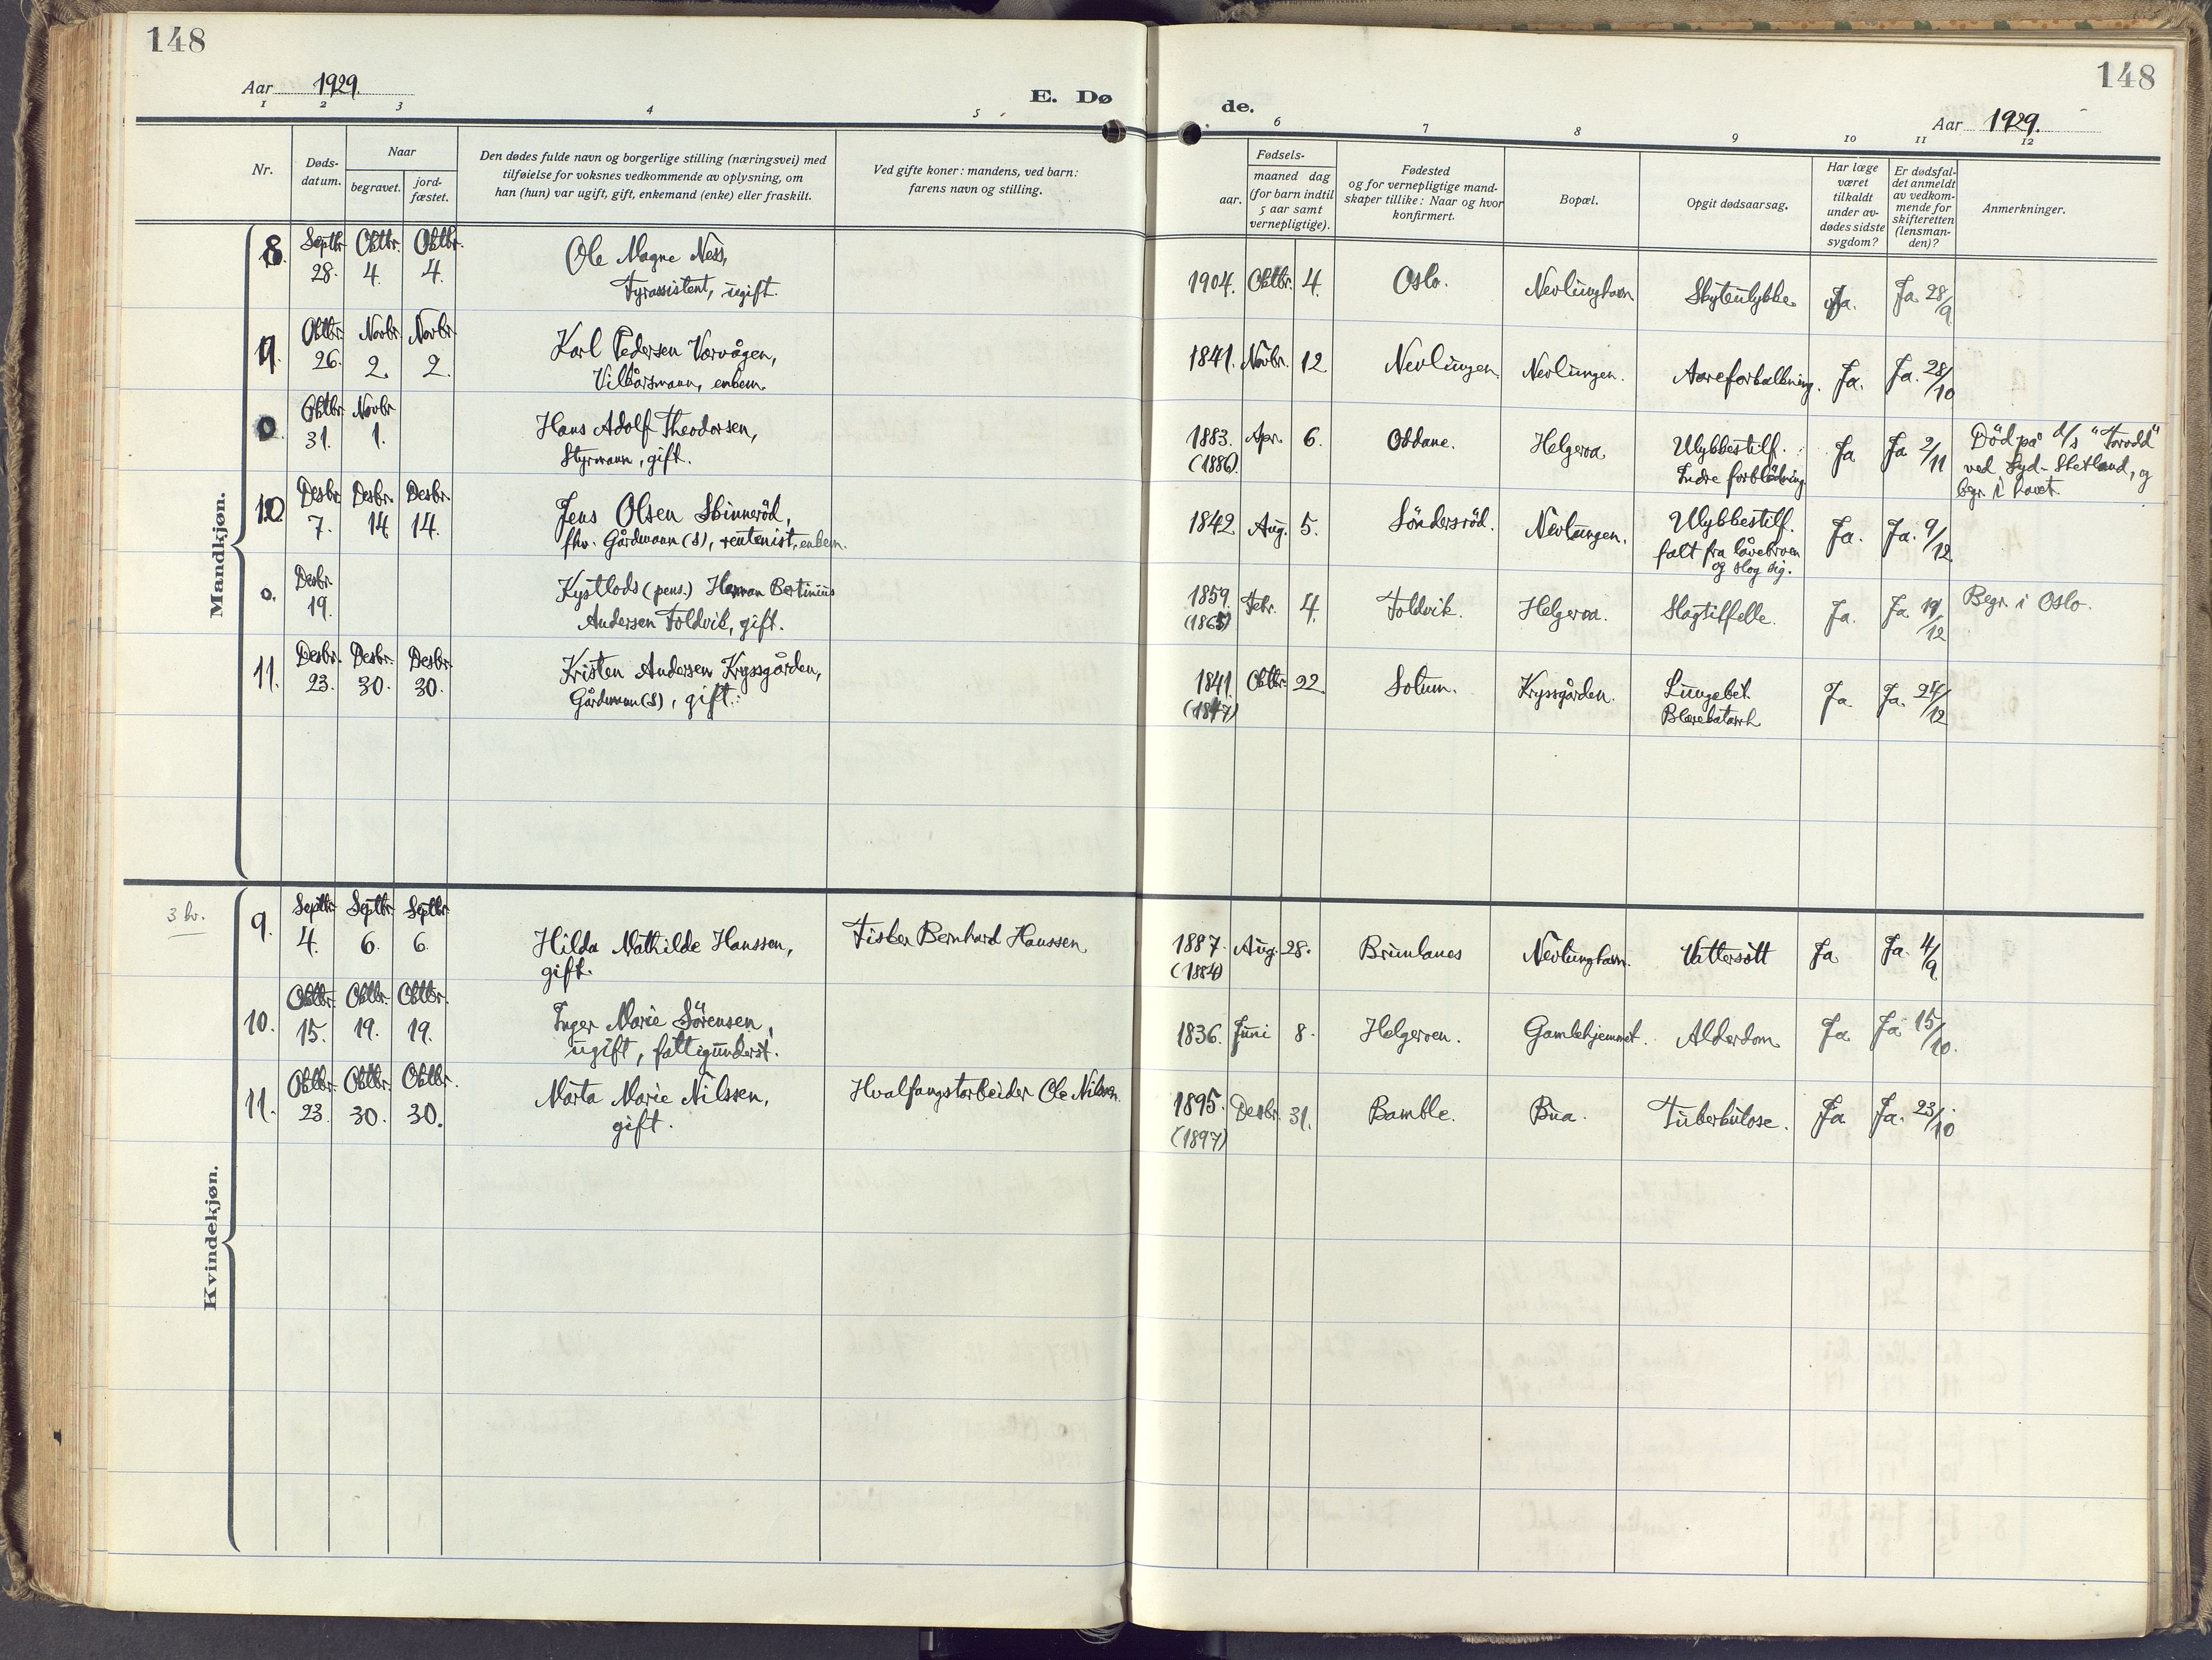 148
148
Aar 1929.
E. Dø
de.
Aar 1929.
1 2 3 4 5 6 7 8 9 10 11 12
Nr.
Døds-
datum.
Naar
begravet.
jord-
fæstet.
Den dødes fulde navn og borgerlige stilling (næringsvei) med
tilføielse for voksnes vedkommende av oplysning, om
han (hun) var ugift, gift, enkemand (enke) eller fraskilt.
Ved gifte koner: mandens, ved barn:
farens navn og stilling.
Fødsels-
aar.
maaned dag
(for barn indtil
5 aar samt
vernepligtige).
Fødested
og for vernepligtige mand-
skaper tillike: Naar og hvor
konfirmert.
Bopæl.
Opgit dødsaarsag.
Har læge
været
tilkaldt
under av-
dødes sidste
sygdom?
Er dødsfal-
det anmeldt
av vedkom-
mende for
skifteretten
(lensman-
den)?
Anmerkninger.
Mandkjøn.
8. Septbr. 28. Oktbr. 4. Oktbr. 4. Ole Magne Ness,
Fyrassistent, ugift.
1904. Oktbr. 4. Oslo. Nevlunghavn Skyteulykke. Ja. Ja. 28/9
9. Oktbr. 26. Novbr. 2. Novbr. 2. Karl Pedersen Vorvågen,
Vilkårsmann, enkem.
1841. Novbr. 12 Nevlungen. Nevlungen. Aareforkalkning. Ja. Ja. 28/10
0. Oktbr. 31. Novbr. 1. Hans Adolf Theodorsen,
Styrmann, gift.
1883. (1886). Apr. 6. Oddane. Helgeroa. Ulykkestilf.
Indre forblødning. Ja Ja 2/11 Död på d/s "Torodd"
ved Syd-Shetland, og
begr. i havet.
10. Desbr. 7. Desbr. 14. Desbr. 14. Jens Olsen Skinneröd,
fhv. Gårdmann (S), rentenist, enkem.
1842 Aug. 5. Söndersröd. Nevlungen. Ulykkestilf.
falt fra låvebroen
og slog sig. Ja. Ja. 9/12
0. Desbr. 19. Kystlods (pens.) Herman Bertinius
Andersen Foldvik, gift.
1859. (1865) Febr. 4. Foldvik. Helgeroa. Slagtilfelle. Ja. Ja 19/12 Begr. i Oslo.
11. Desbr. 23. Desbr. 30. Desbr. 30. Kristen Andersen Kryssgården,
Gårdmann (S), gift.
1841. (1847) Oktbr. 22. Solum. Kryssgården. Lungebet.
Blærekatarrh Ja Ja. 24/12
Kvindekjøn.
3 kv.
9. Septbr. 4. Septbr. 6. Septbr. 6. Hilda Mathilde Hanssen,
gift.
Fisker Bernhard Hanssen
1887. (1884) Aug. 28. Brunlanes Nevlunghavn. Vattersott Ja Ja. 4/9
10. Oktbr. 15. Oktbr. 19. Oktbr. 19. Inger Marie Sörensen,
ugift, fattigunderst.
1836. Juni 8. Helgeroen. Gamlehjemmet. Alderdom Ja Ja 15/10.
11. Oktbr. 23. Oktbr. 30. Oktbr. 30. Marta Marie Nilssen,
gift.
Hvalfangstarbeider Ole Nilssen.
1895. (1897) Desbr. 31. Bamble. Bua. Tuberkulose. Ja. Ja. 23/10